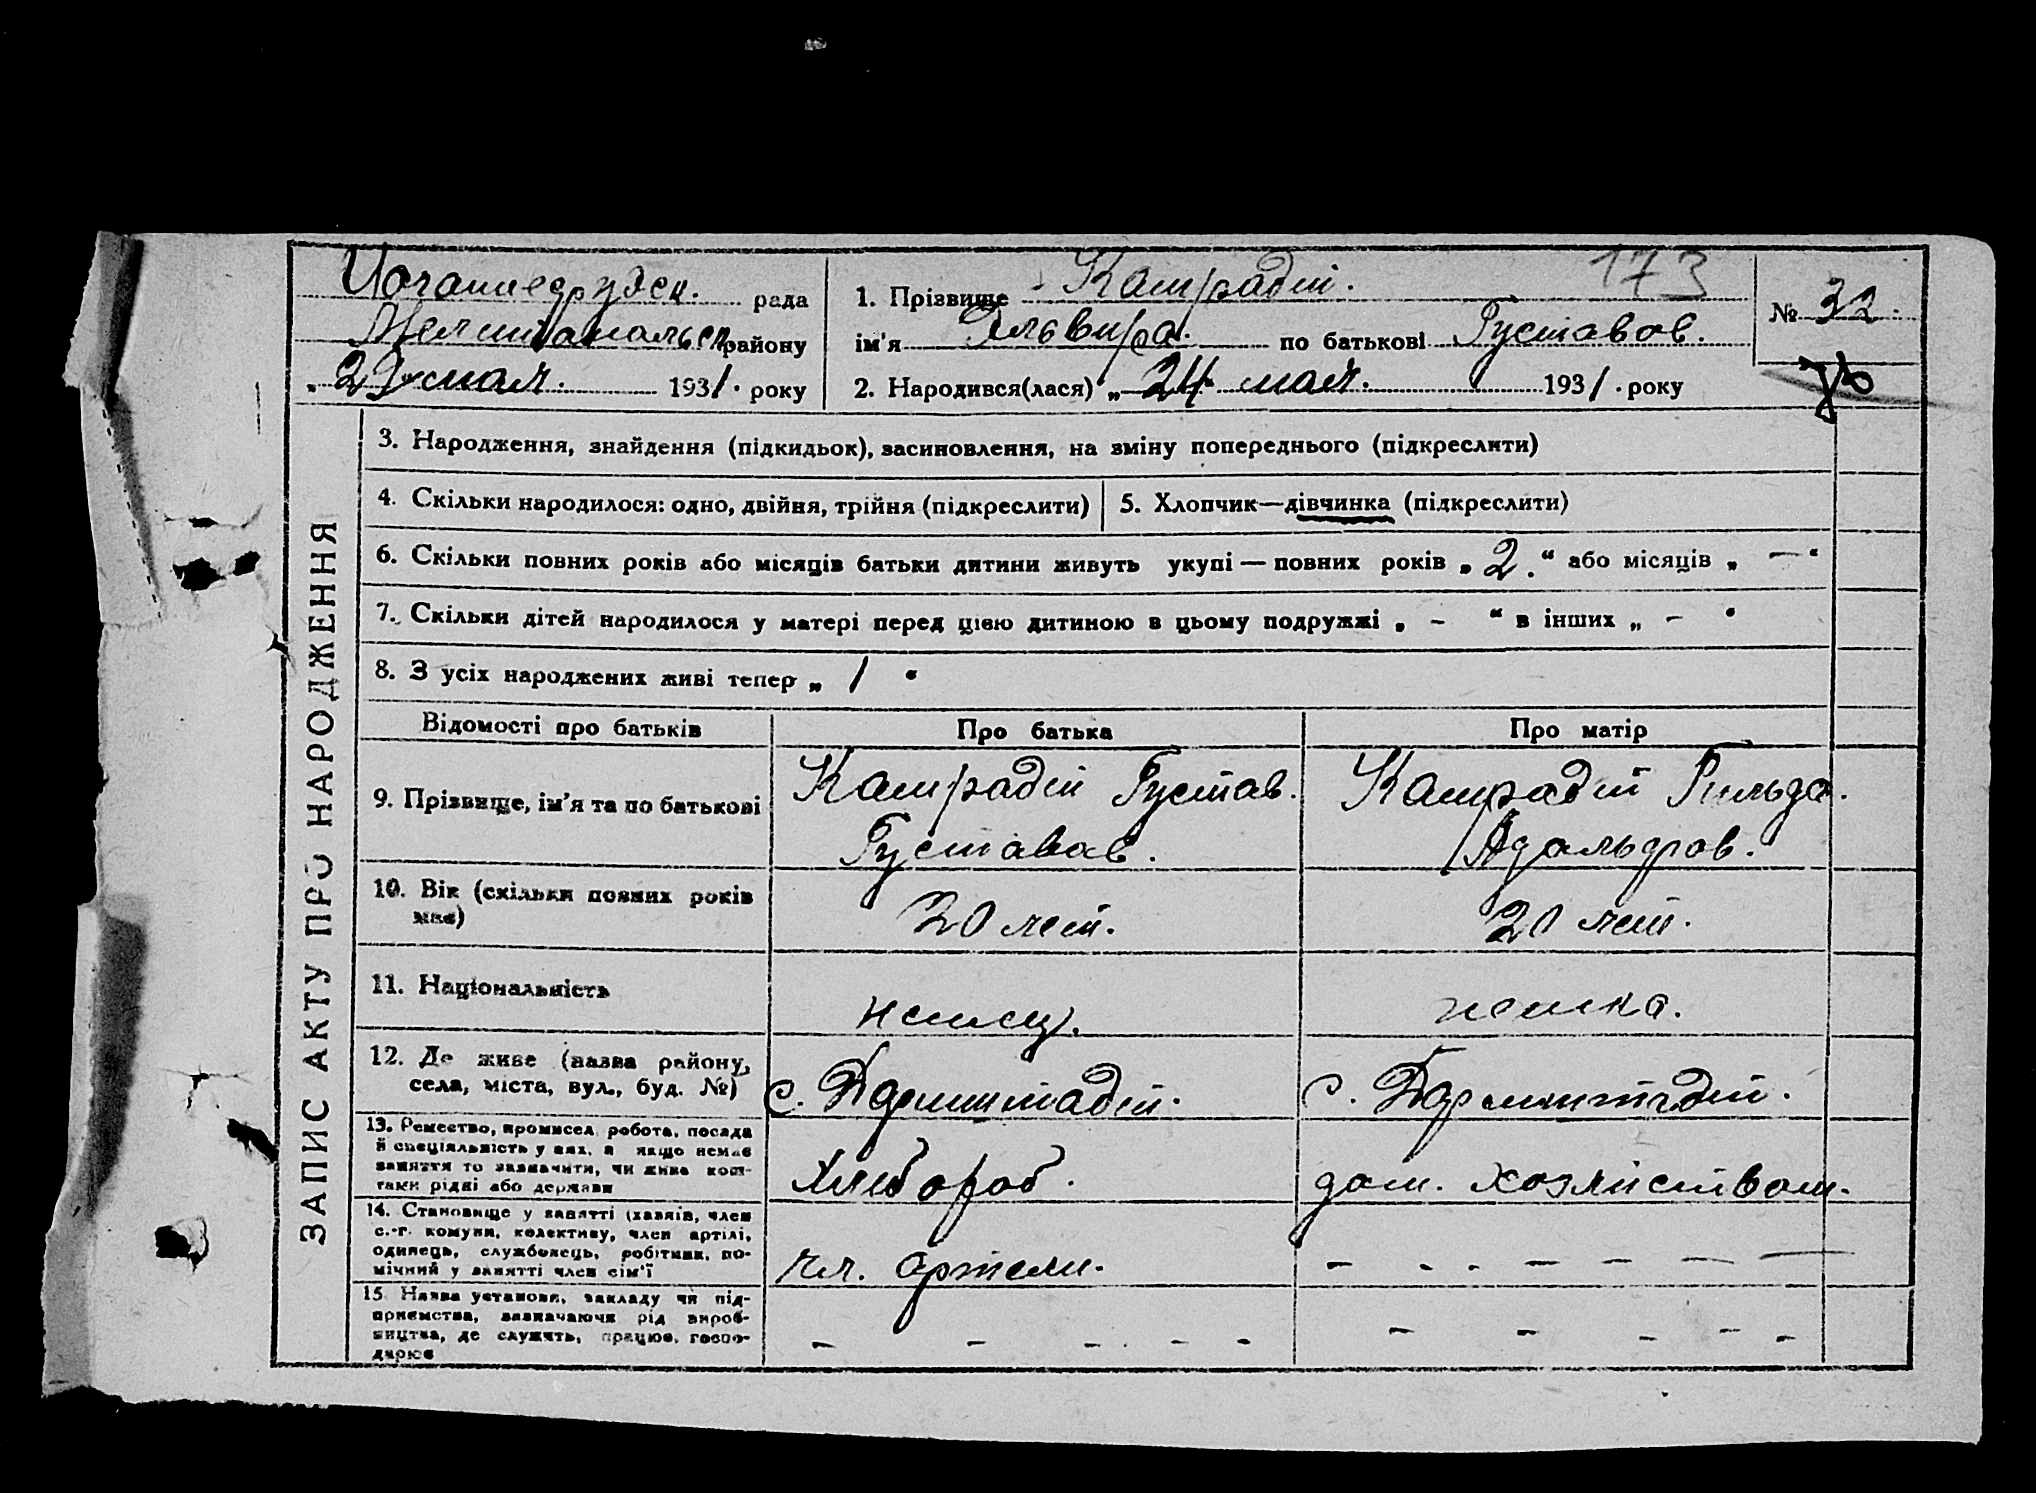 173
рада
1. Прізвище Камрадт.
№ 32.
району
ім'я Эльвира. по батькові Густавов.
„29" мая. 1931. року
2. Народився(лася) „24" мая. 1931. року
ЗАПИС АКТУ ПРО НАРОДЖЕННЯ
3. Народження, знайдення (підкидьок), засиновлення, на зміну попереднього (підкреслити)
4. Скільки народилося: одно, двійня, трійня (підкреслити)
5. Хлопчик—дівчинка (підкреслити)
6. Скільки повних років або місяців батьки дитини живуть укупі — повних років „2." або місяців „ — "
7. Скільки дітей народилося у матері перед цією дитиною в цьому подружжі „ - " в інших „ - "
8. З усіх народжених живі тепер „ 1 "
Відомості про батьків
Про батька
Про матір
9. Прізвище, ім'я та по батькові
Камрадт Густав.
Густавов.
Камрадт Гильда.
10. Вік (скільки повних років має)
20 лет.
20 лет.
11. Національність
немец.
немка.
12. Де живе (назва району,
села, міста, вул., буд. №)
с. Дармштадт.
с. Дармштадт.
13. Ремество, промисел, робота, посада
й спеціяльність у них, а якщо немає
заняття то зазначити, чи живе кош-
тами рідні або держави
Хлебороб.
дом. хозяйством.
14. Становище у занятті (хазяїн, член
с.-г. комуни, колективу, член артілі,
одинець, службовець, робітник, по-
мічний у занятті член сім'ї
чл. артели.
- - - - - -
15. Назва установи, закладу чи під-
приємства, зазначаючи рід вироб-
ництва, де служить, працює, госпо-
дарює
- - - - - -
- - - - -